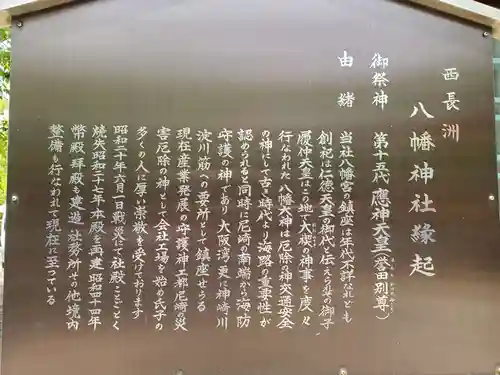 西長洲
八幡神社縁起
御祭神　第十五代　應神天皇(誉田別尊)
由緒
当社八幡宮の鎮座は年代不詳なれども
創祀は仁徳天皇の御代と伝えられ其の御子
履仲天皇はこの地で大禊の神事を度々
行なわれた　八幡大神は厄除の神交通安全
の神にして古き時代より海路の重要性が
認められると同時に尼崎の南端から海防
守護の神であり　大阪湾更に神崎川
淀川筋への要所として鎮座せらる
現在産業発展の守護神工都尼崎の災
害厄除の神として会社工場を始め氏子の
多くの人に厚い崇敬を受けております
昭和二十年六月一日戦災にて社殿ことごとく
焼失昭和二十七年本殿を再建　昭和四十四年
幣殿　拝殿も建造　社務所其の他境内
整備も行なわれて現在に至つている